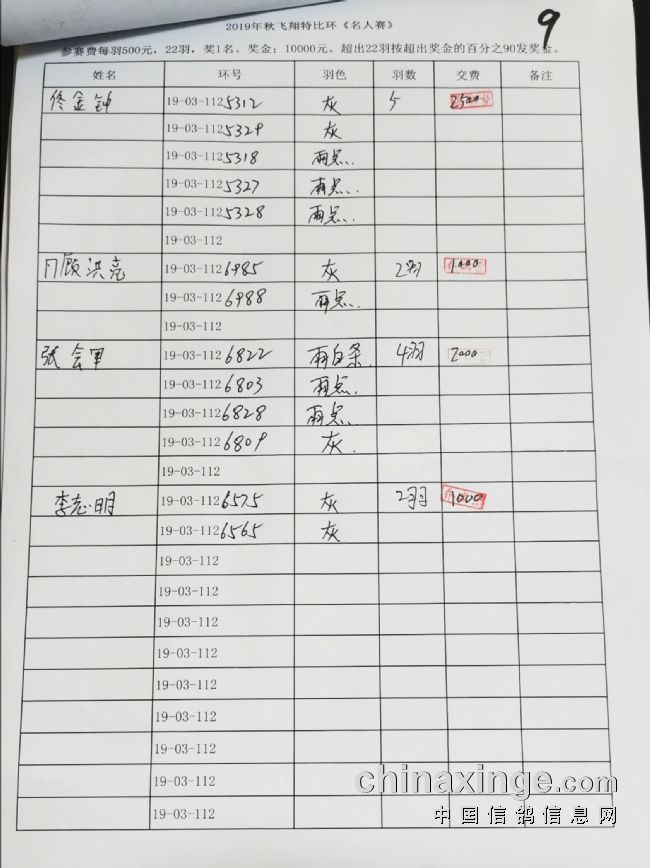 9
2019年秋飞翔特比环《名人赛》
参赛费每羽500元，22羽，奖1名。奖金：10000元。超出22羽按超出奖金的百分之90发奖金。
姓名 环号 羽色 羽数 交费 备注
佟金钟 19-03-1125312 灰 5 2500
19-03-1125329 灰
19-03-1125318 雨点
19-03-1125327 雨点
19-03-1125328 雨点
19-03-112
顾洪亮 19-03-1126985 灰 2羽 1000
19-03-1126988 雨点
19-03-112
张会军 19-03-1126822 雨白条 4羽 2000
19-03-1126803 雨点
19-03-1126828 雨点
19-03-1126809 灰
19-03-112
李志明 19-03-1126575 灰 2羽 1000
19-03-1126565 灰
19-03-112
19-03-112
19-03-112
19-03-112
19-03-112
19-03-112
19-03-112
19-03-112
19-03-112
chinaxinge.com
中国信鸽信息网